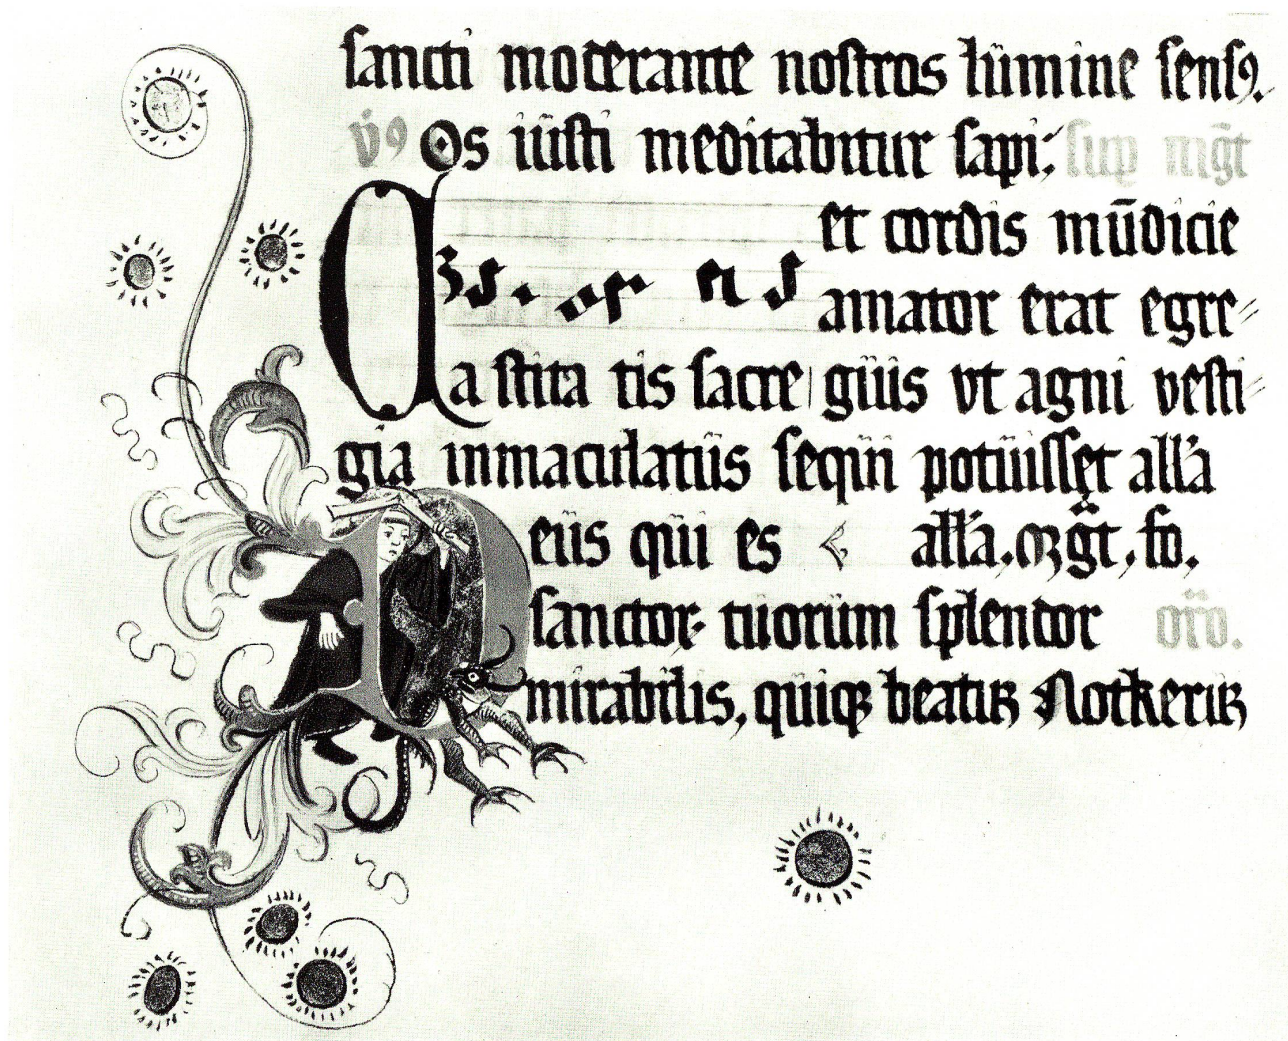 sancti moderante nostros lumine sensꝰ.
v̇ꝰ Os iusti meditabitur sapi: sup mg̃t
et cordis mūdicie
amator erat egre-
Castita tis sacre gius vt agni vesti-
gia inmaculatus sequi potuisset all'a
eius qui es all'a. mg̃t, fo.
D sanctoꝝ tuorum splendor oro.
mirabilis, quiqꝫ beatus Notkerus